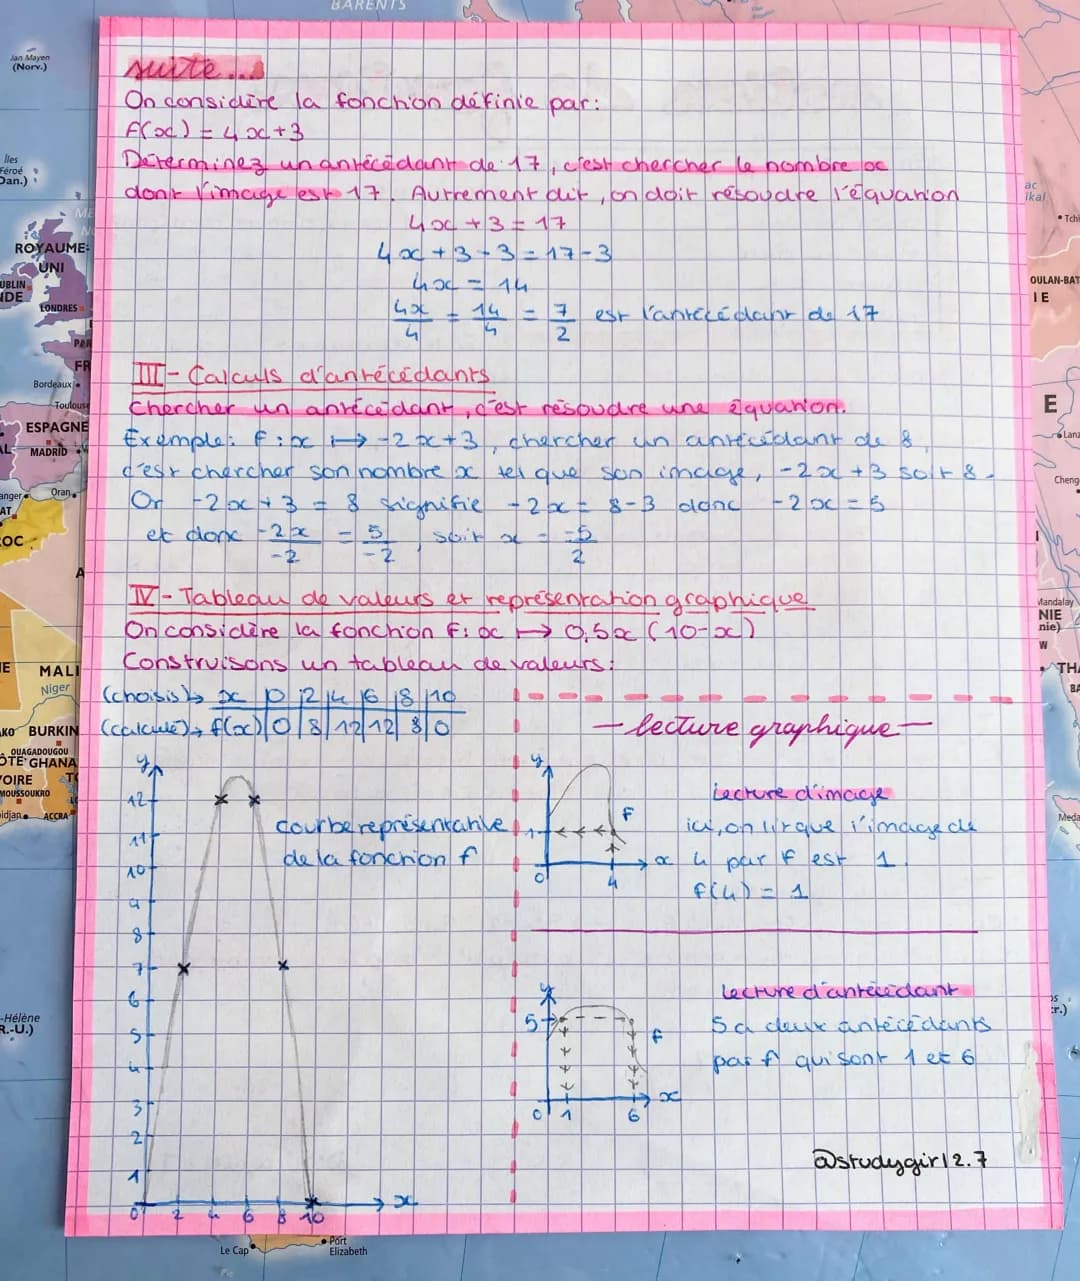 BARENTS
suite...
On considère la fonction définie par:
f(x) = 4x+3
Déterminez un antécédant de 17, c'est chercher le nombre x
dont l'image est 17. Autrement dit, on doit résoudre l'équation
4x + 3 = 17
4x + 3 - 3 = 17 - 3
4x = 14
4x/4 = 14/4 = 7/2 est l'antécédant de 17
III - Calculs d'antécédants
Chercher un antécédant, c'est résoudre une équation.
Exemple: f: x ↦ -2x+3, chercher un antécédant de 8
c'est chercher son nombre x tel que son image, -2x+3 soit 8.
Or -2x + 3 = 8 signifie -2x = 8-3 donc -2x = 5
et donc -2x/-2 = 5/-2, soit x = -5/2
IV - Tableau de valeurs et représentation graphique
On considère la fonction f: x ↦ 0,5x (10-x)
Construisons un tableau de valeurs:
(choisis) ↳ x | 0 | 2 | 4 | 6 | 8 | 10
(calculé) → f(x) | 0 | 8 | 12 | 12 | 8 | 0
y
12
11
10
9
8
7
6
5
4
3
2
1
0 2 4 6 8 10 x
courbe représentative
de la fonction f
— lecture graphique —
y
1
f
0 4 x
Lecture d'image
ici, on lit que l'image de
4 par f est 1
f(4) = 1
y
5
f
0 1 6 x
Lecture d'antécédant
5 a deux antécédants
par f qui sont 1 et 6
@studygirl2.7
Jan Mayen
(Norv.)
Îles
Féroé
Dan.)
ROYAUME-
UNI
UBLIN
NDE
LONDRES
PAR
FR
Bordeaux
Toulouse
ESPAGNE
MADRID
Oran
MALI
Niger
BURKIN
OUAGADOUGOU
GHANA
MOUSSOUKRO
ACCRA
-Hélène
R.-U.)
Le Cap
Port
Elizabeth
OULAN-BAT
IE
E
Lanz
Cheng
Mandalay
NIE
nie)
W
TH
Meda